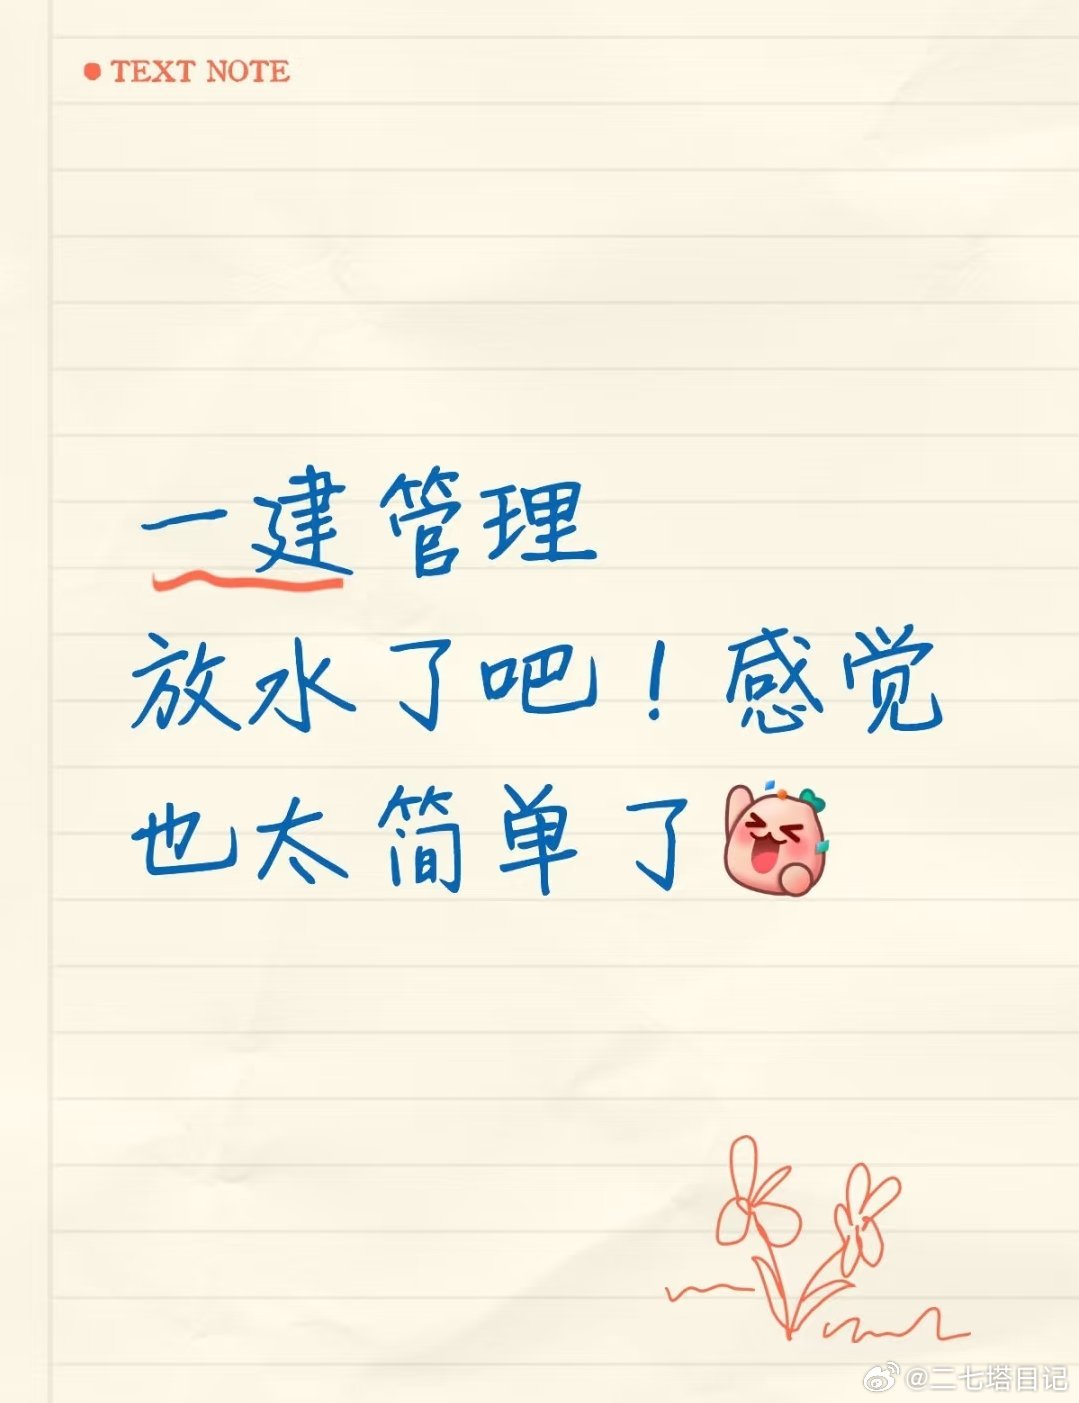 TEXT NOTE
一建管理
放水了吧！感觉
也太简单了
@二七塔日记